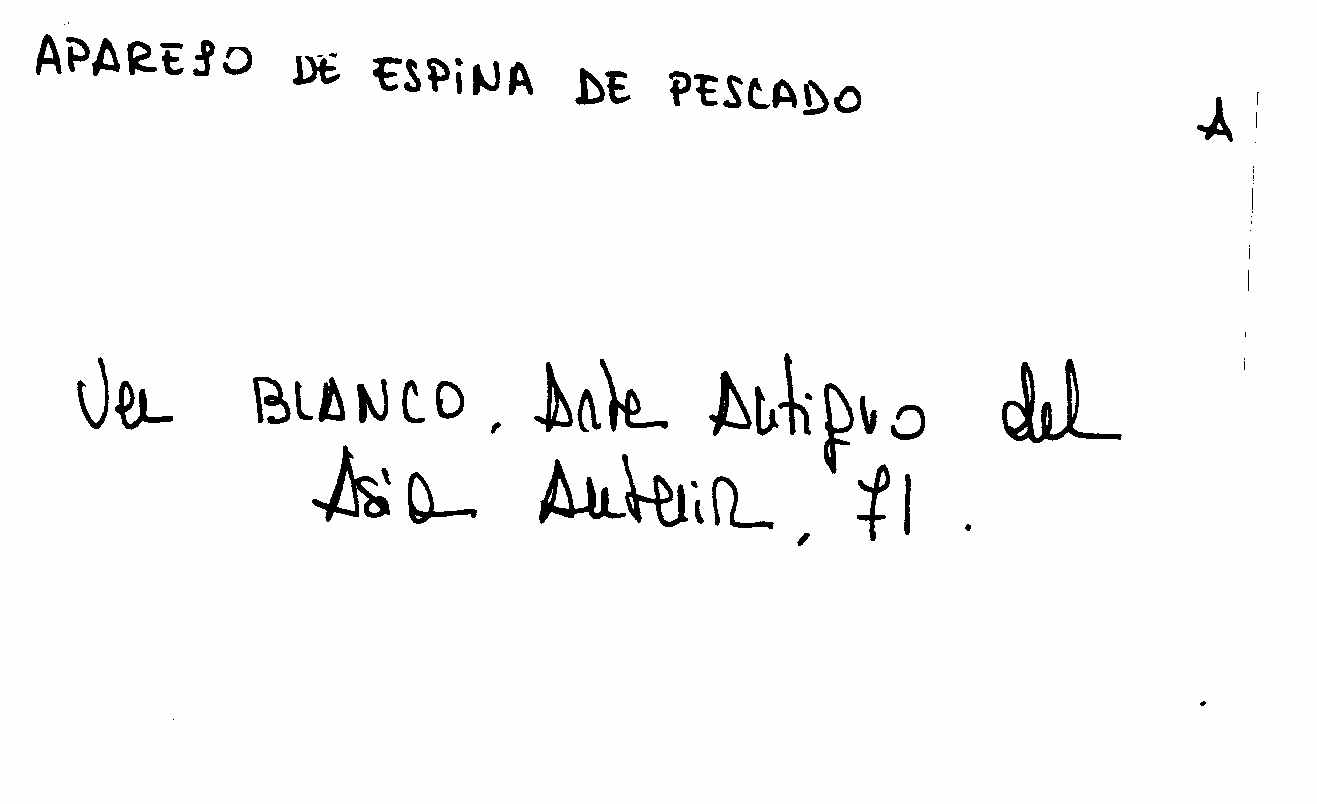 APAREJO DE ESPINA DE PESCADO
A
Ver BLANCO, Arte Antiguo del
Asia Anterior, 71.